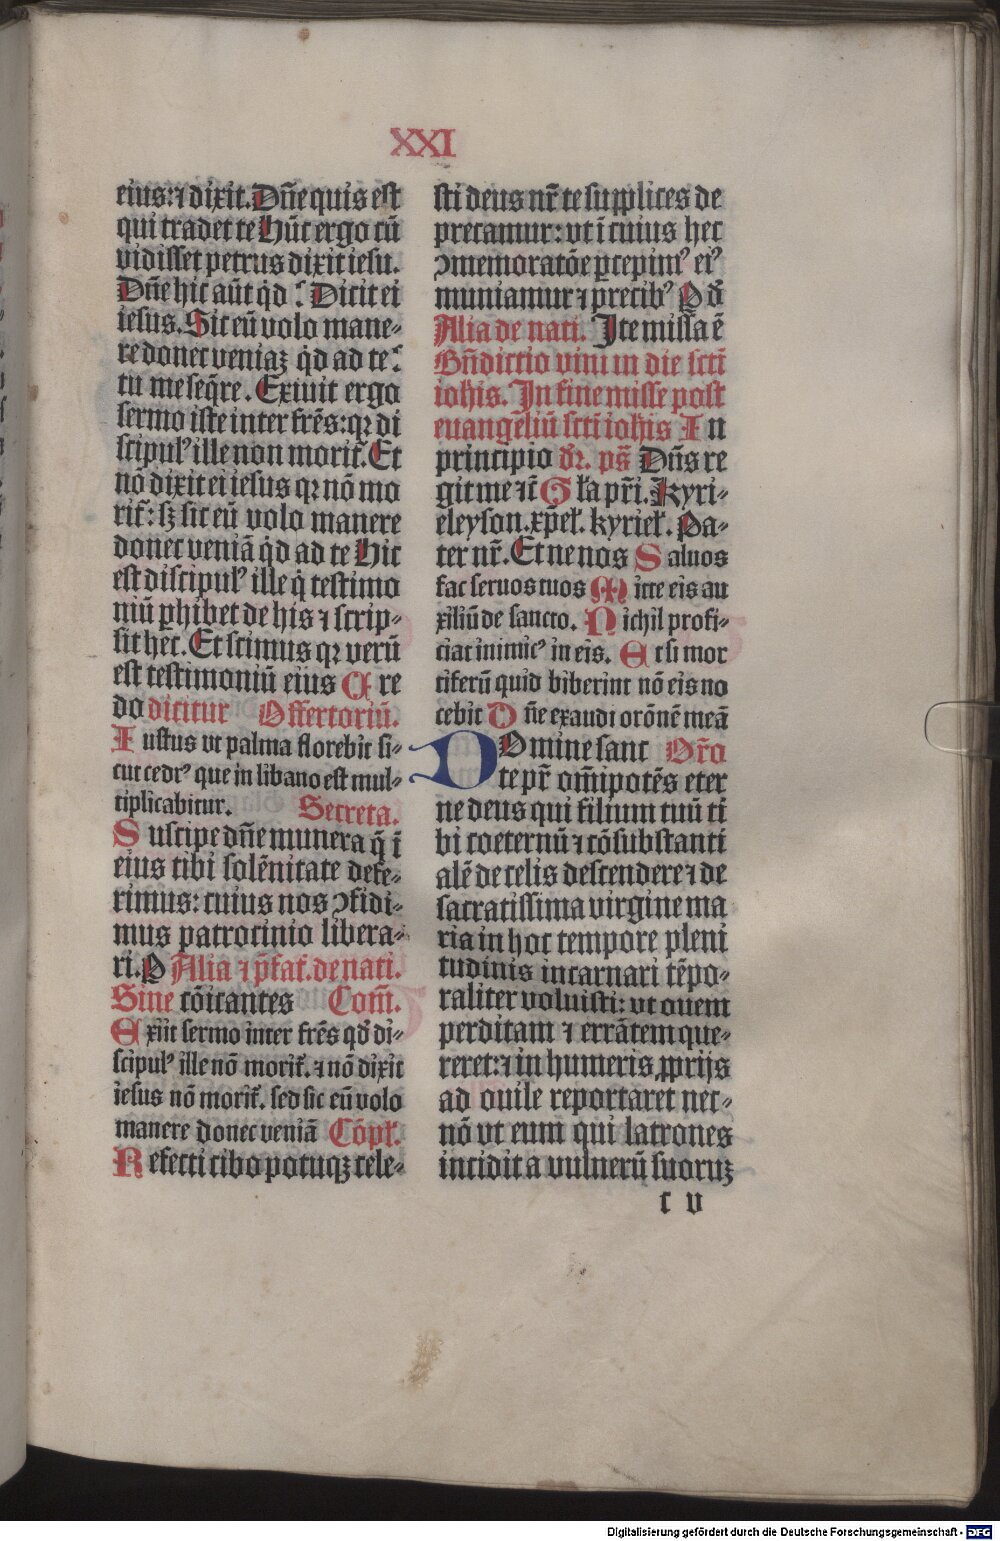 XXI
eius: ⁊ dixit. Dn̄e quis est
qui tradet te Hūc ergo cū
vidisset petrus dixit iesu.
Dn̄e hic aūt q̇d ⸵ Dicit ei
iesus. Sic eū volo mane⸗
re donec veniaꝫ q̇d ad te ⸵
tu me seq̄re. Exiuit ergo
sermo iste inter fr̄es: qꝛ di
scipulꝰ ille non morit᷑. Et
nō dixit ei iesus qꝛ nō mo
rit᷑: sꝫ sic eū volo manere
donec veniā q̇d ad te Hic
est discipulꝰ ille q̇ testimo
niū ꝑhibet de his ⁊ scrip⸗
sit hec. Et scimus qꝛ verū
est testimoniū eius Cre
do dicitur Offertoriū.
Iustus vt palma florebit si⸗
cut cedrꝰ que in libano est mul⸗
tiplicabitur. Secreta.
Suscipe dn̄e munera q̄ ī
eius tibi solēnitate defe⸗
rimus: cuius nos ꝯfidi⸗
mus patrocinio libera⸗
ri. P Alia ⁊ p̄fat᷑. de nati.
Sine cōicantes Com̄.
Exiit sermo inter fr̄es qd̄ di⸗
scipulꝰ ille nō morit᷑. ⁊ nō dixit
iesus nō morit᷑. sed sic eū volo
manere donec veniā Cōpl᷑.
Refecti cibo potuqꝫ cele⸗
sti deus nr̄ te supplices de
precamur: vt ī cuius hec
ꝯmemoratōe ꝑcepimꝰ eiꝰ
muniamur ⁊ precibꝰ P d̄
Alia de nati. Ite missa ē
Bn̄dictio vini in die scti
iohis. In fine misse post
euangeliū scti iohis In
principio dr̄. ps̄ Dn̄s re
git me ⁊c̄ Gl̄a pr̄i. Kyri⸗
eleyson. xp̄el᷑. kyriel᷑. Pa⸗
ter nr̄. Et ne nos Saluos
fac seruos tuos Mitte eis au
xiliū de sancto. Nichil profi⸗
ciat inimicꝰ in eis. Et si mor
tiferū quid biberint nō eis no
cebit Dn̄e exaudi orōnē meā
DOmine sanc Or̄o
te pr̄ om̄ipotēs eter
ne deus qui filium tuū ti
bi coeternū ⁊ cōsubstanti
alē de celis descendere ⁊ de
sacratissima virgine ma
ria in hoc tempore pleni
tudinis incarnari tēpo⸗
raliter voluisti: vt ouem
perditam ⁊ errātem que⸗
reret: ⁊ in humeris ꝓprijs
ad ouile reportaret nec⸗
nō vt eum qui latrones
incidit a vulnerū suoruꝫ
c v
Digitalisierung gefördert durch die Deutsche Forschungsgemeinschaft - DFG